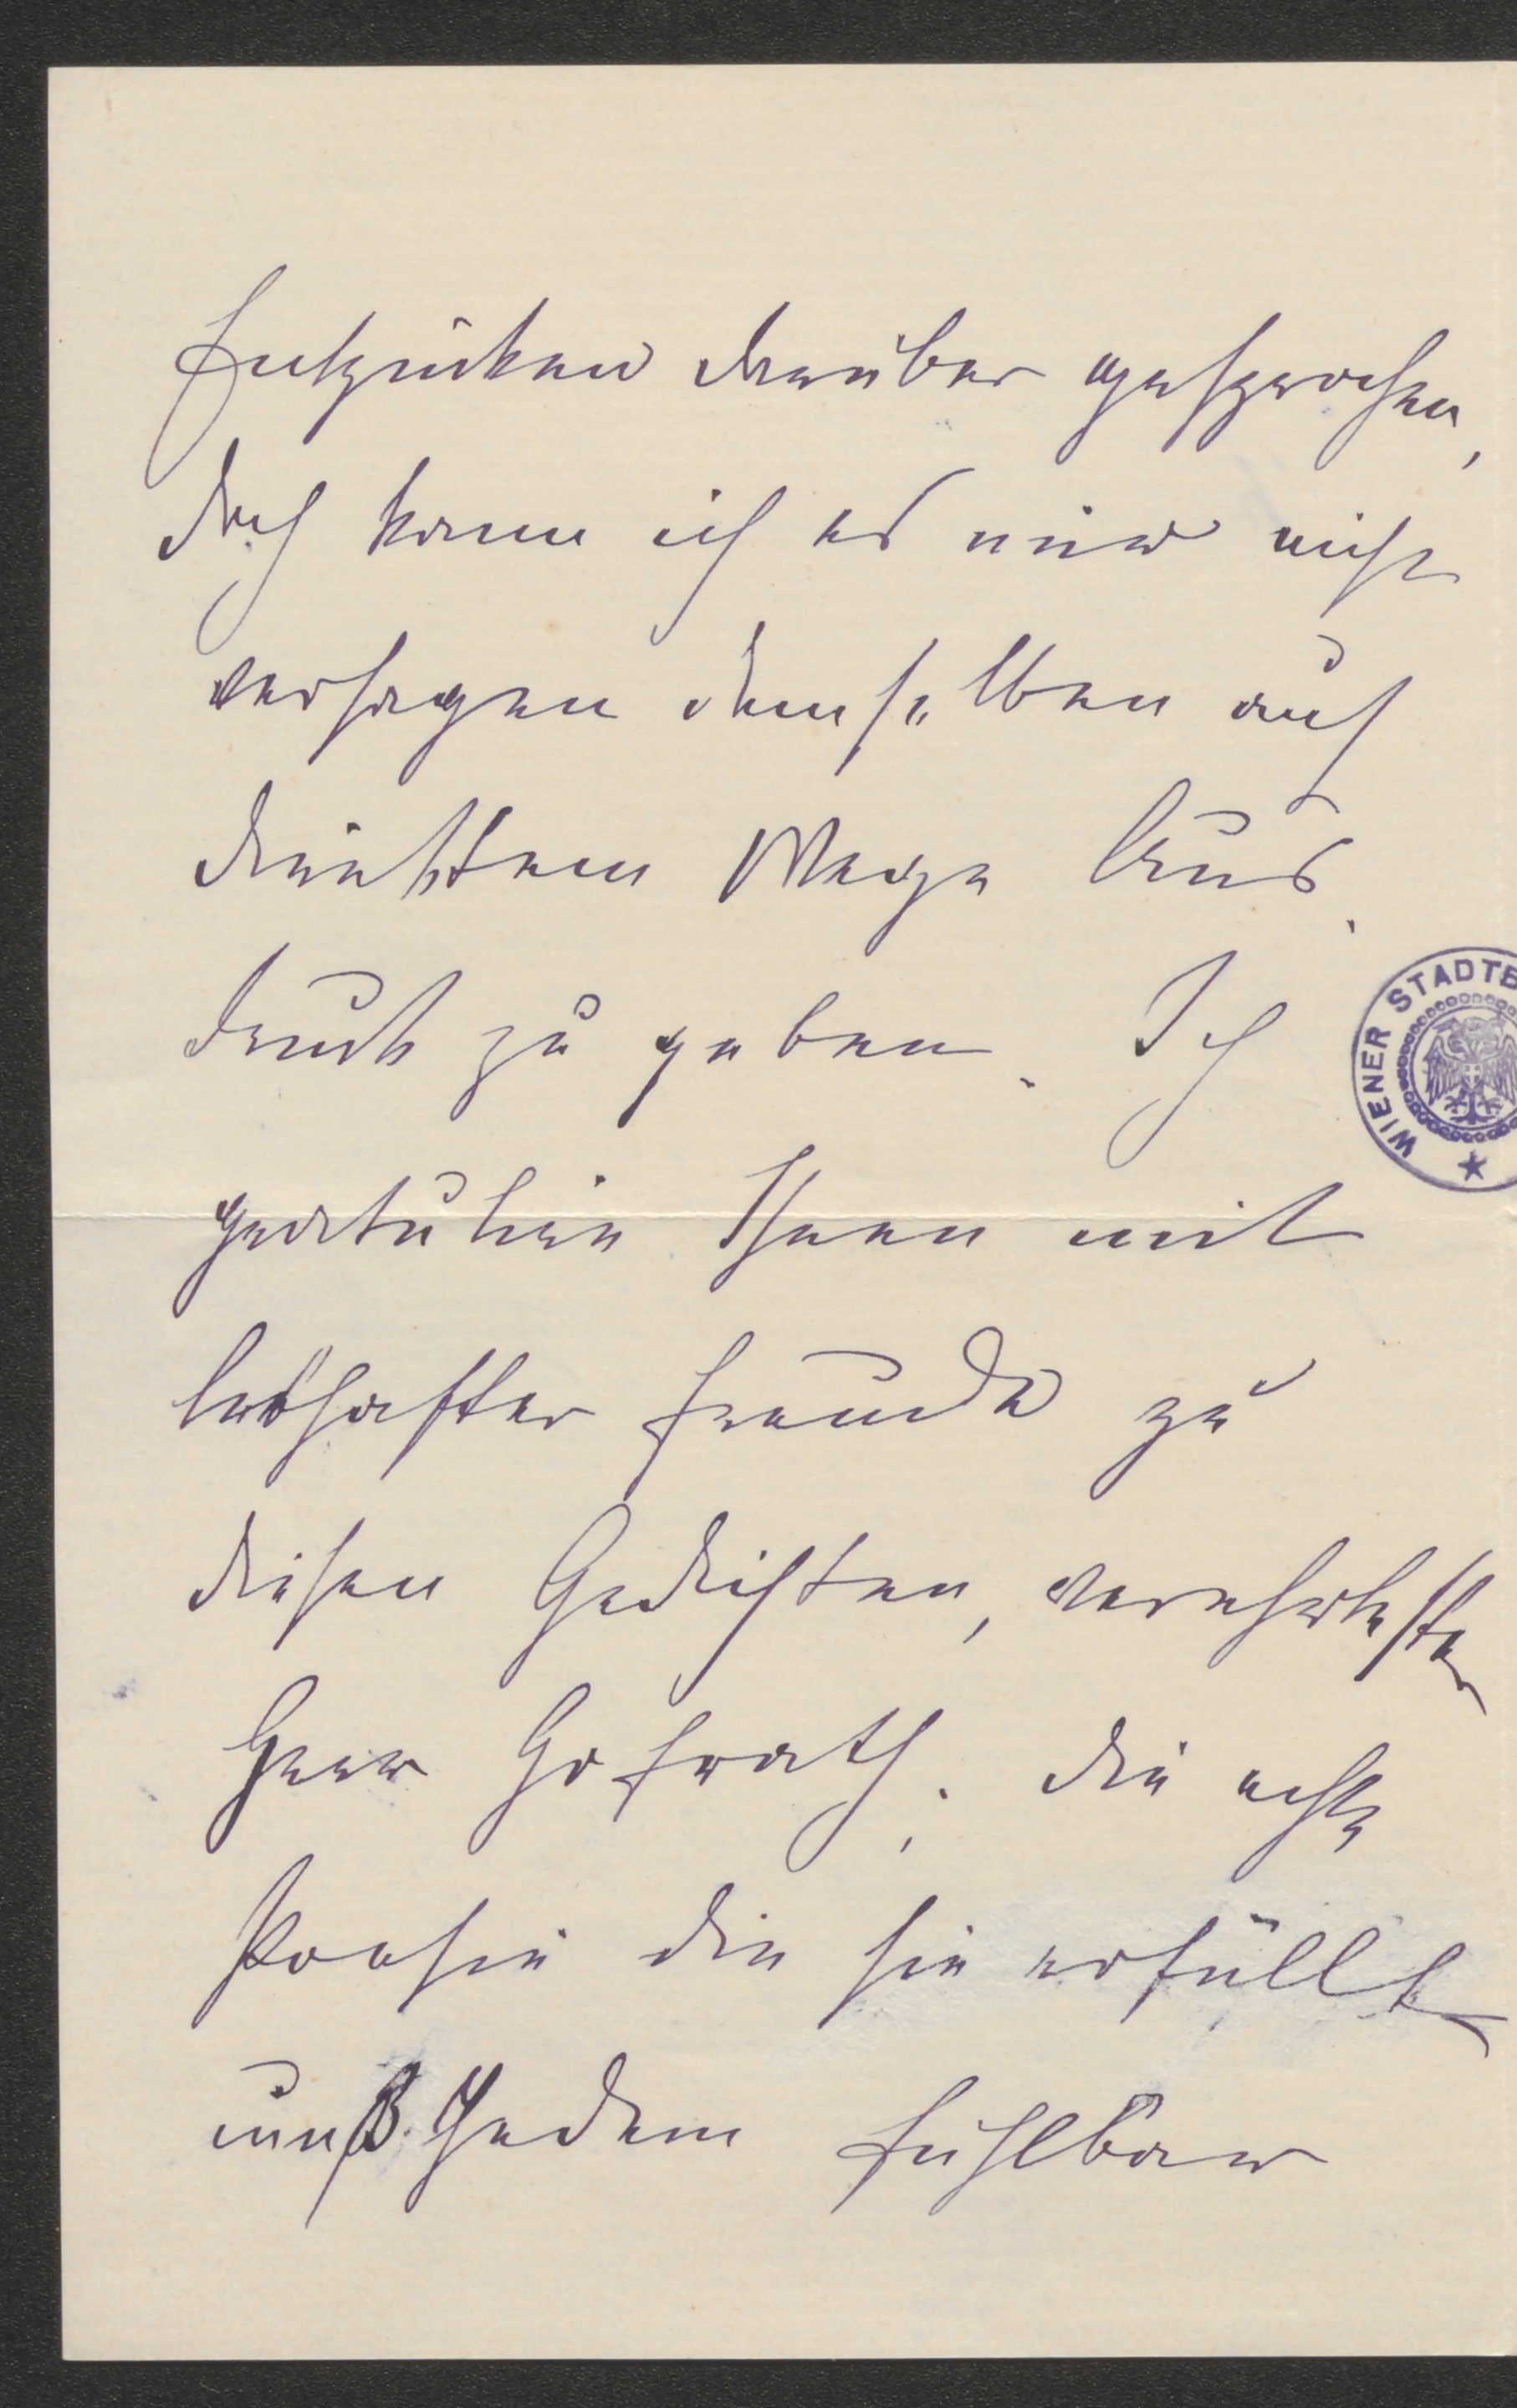 Entzücken darüber gesprochen,
doch kann ich es mir nicht
versagen demselben auf
direktem Wege Aus-
druck zu geben. Ich
gratulire Ihnen mit
lebhafter Freude zu
diesen Gedichten, verehrtester
Herr Hofrath; die echte
Poesie die sie erfüllt
muß Jedem fühlbar
WIENER STADTB